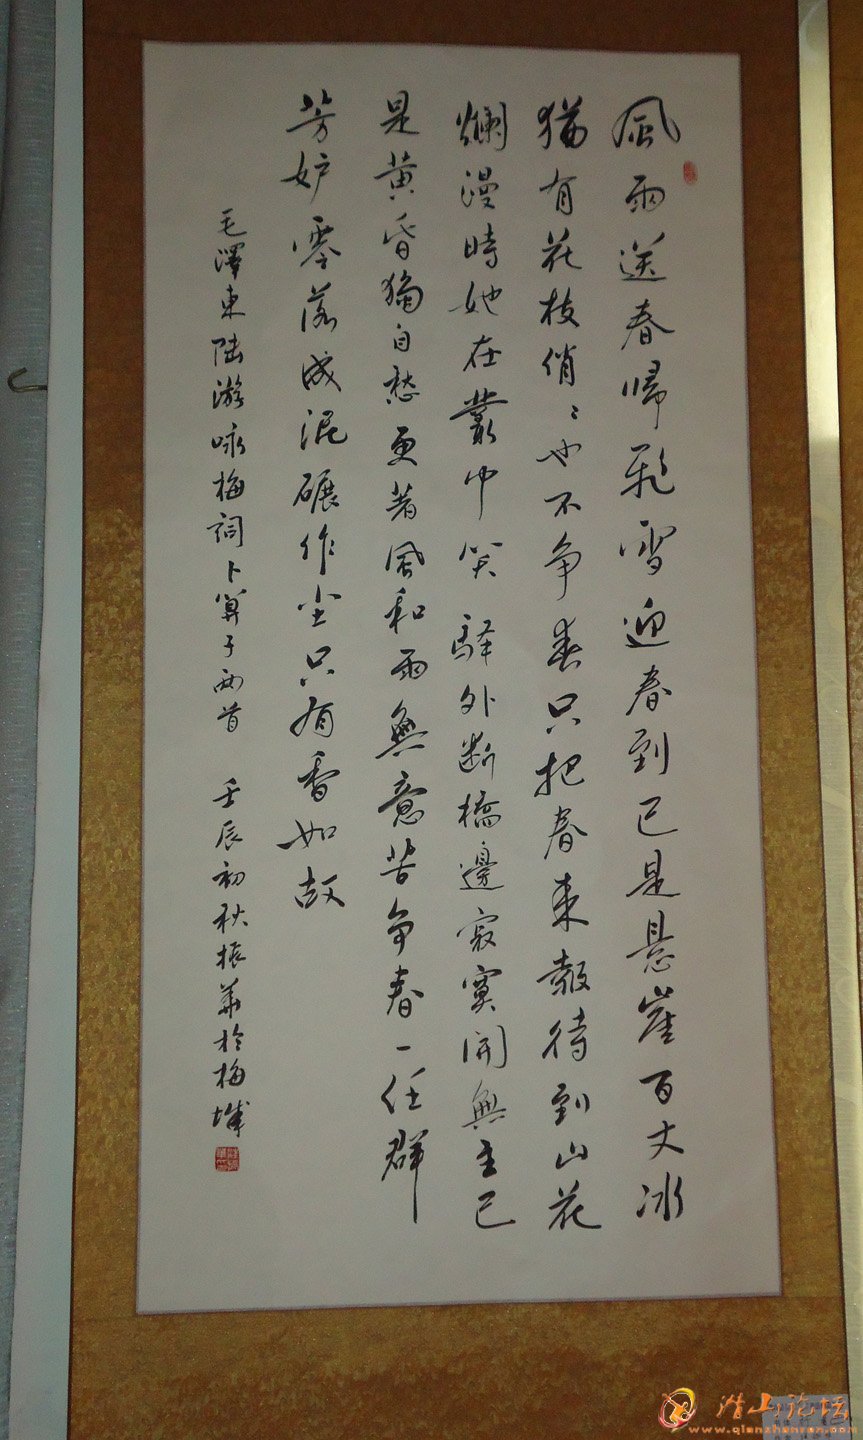 風雨送春歸飛雪迎春到已是悬崖百丈冰
猶有花枝俏〻也不争春只把春来報待到山花
爛漫時她在叢中笑 驿外断橋邊寂寞開無主已
是黄昏獨自愁更著風和雨無意苦争春一任群
芳妒零落成泥碾作尘只有香如故
毛澤東陆游咏梅詞卜算子两首 壬辰初秋振华於梅城
潜山论坛
www.qianshanren.com